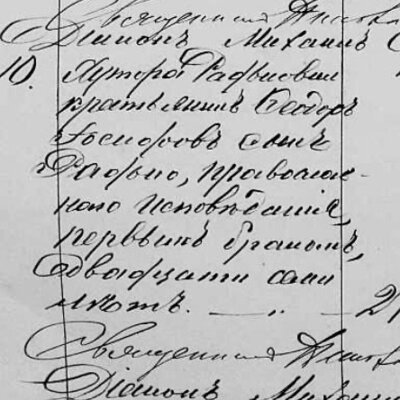 Священникъ
Діаконъ Михаилъ
10. Хутора
крестьянинъ Ѳеодоръ
Іосифовъ сынъ
православ-
наго исповѣданія,
первымъ бракомъ,
двадцати семи
лѣтъ. — „ — 27
Священникъ
Діаконъ Михаилъ